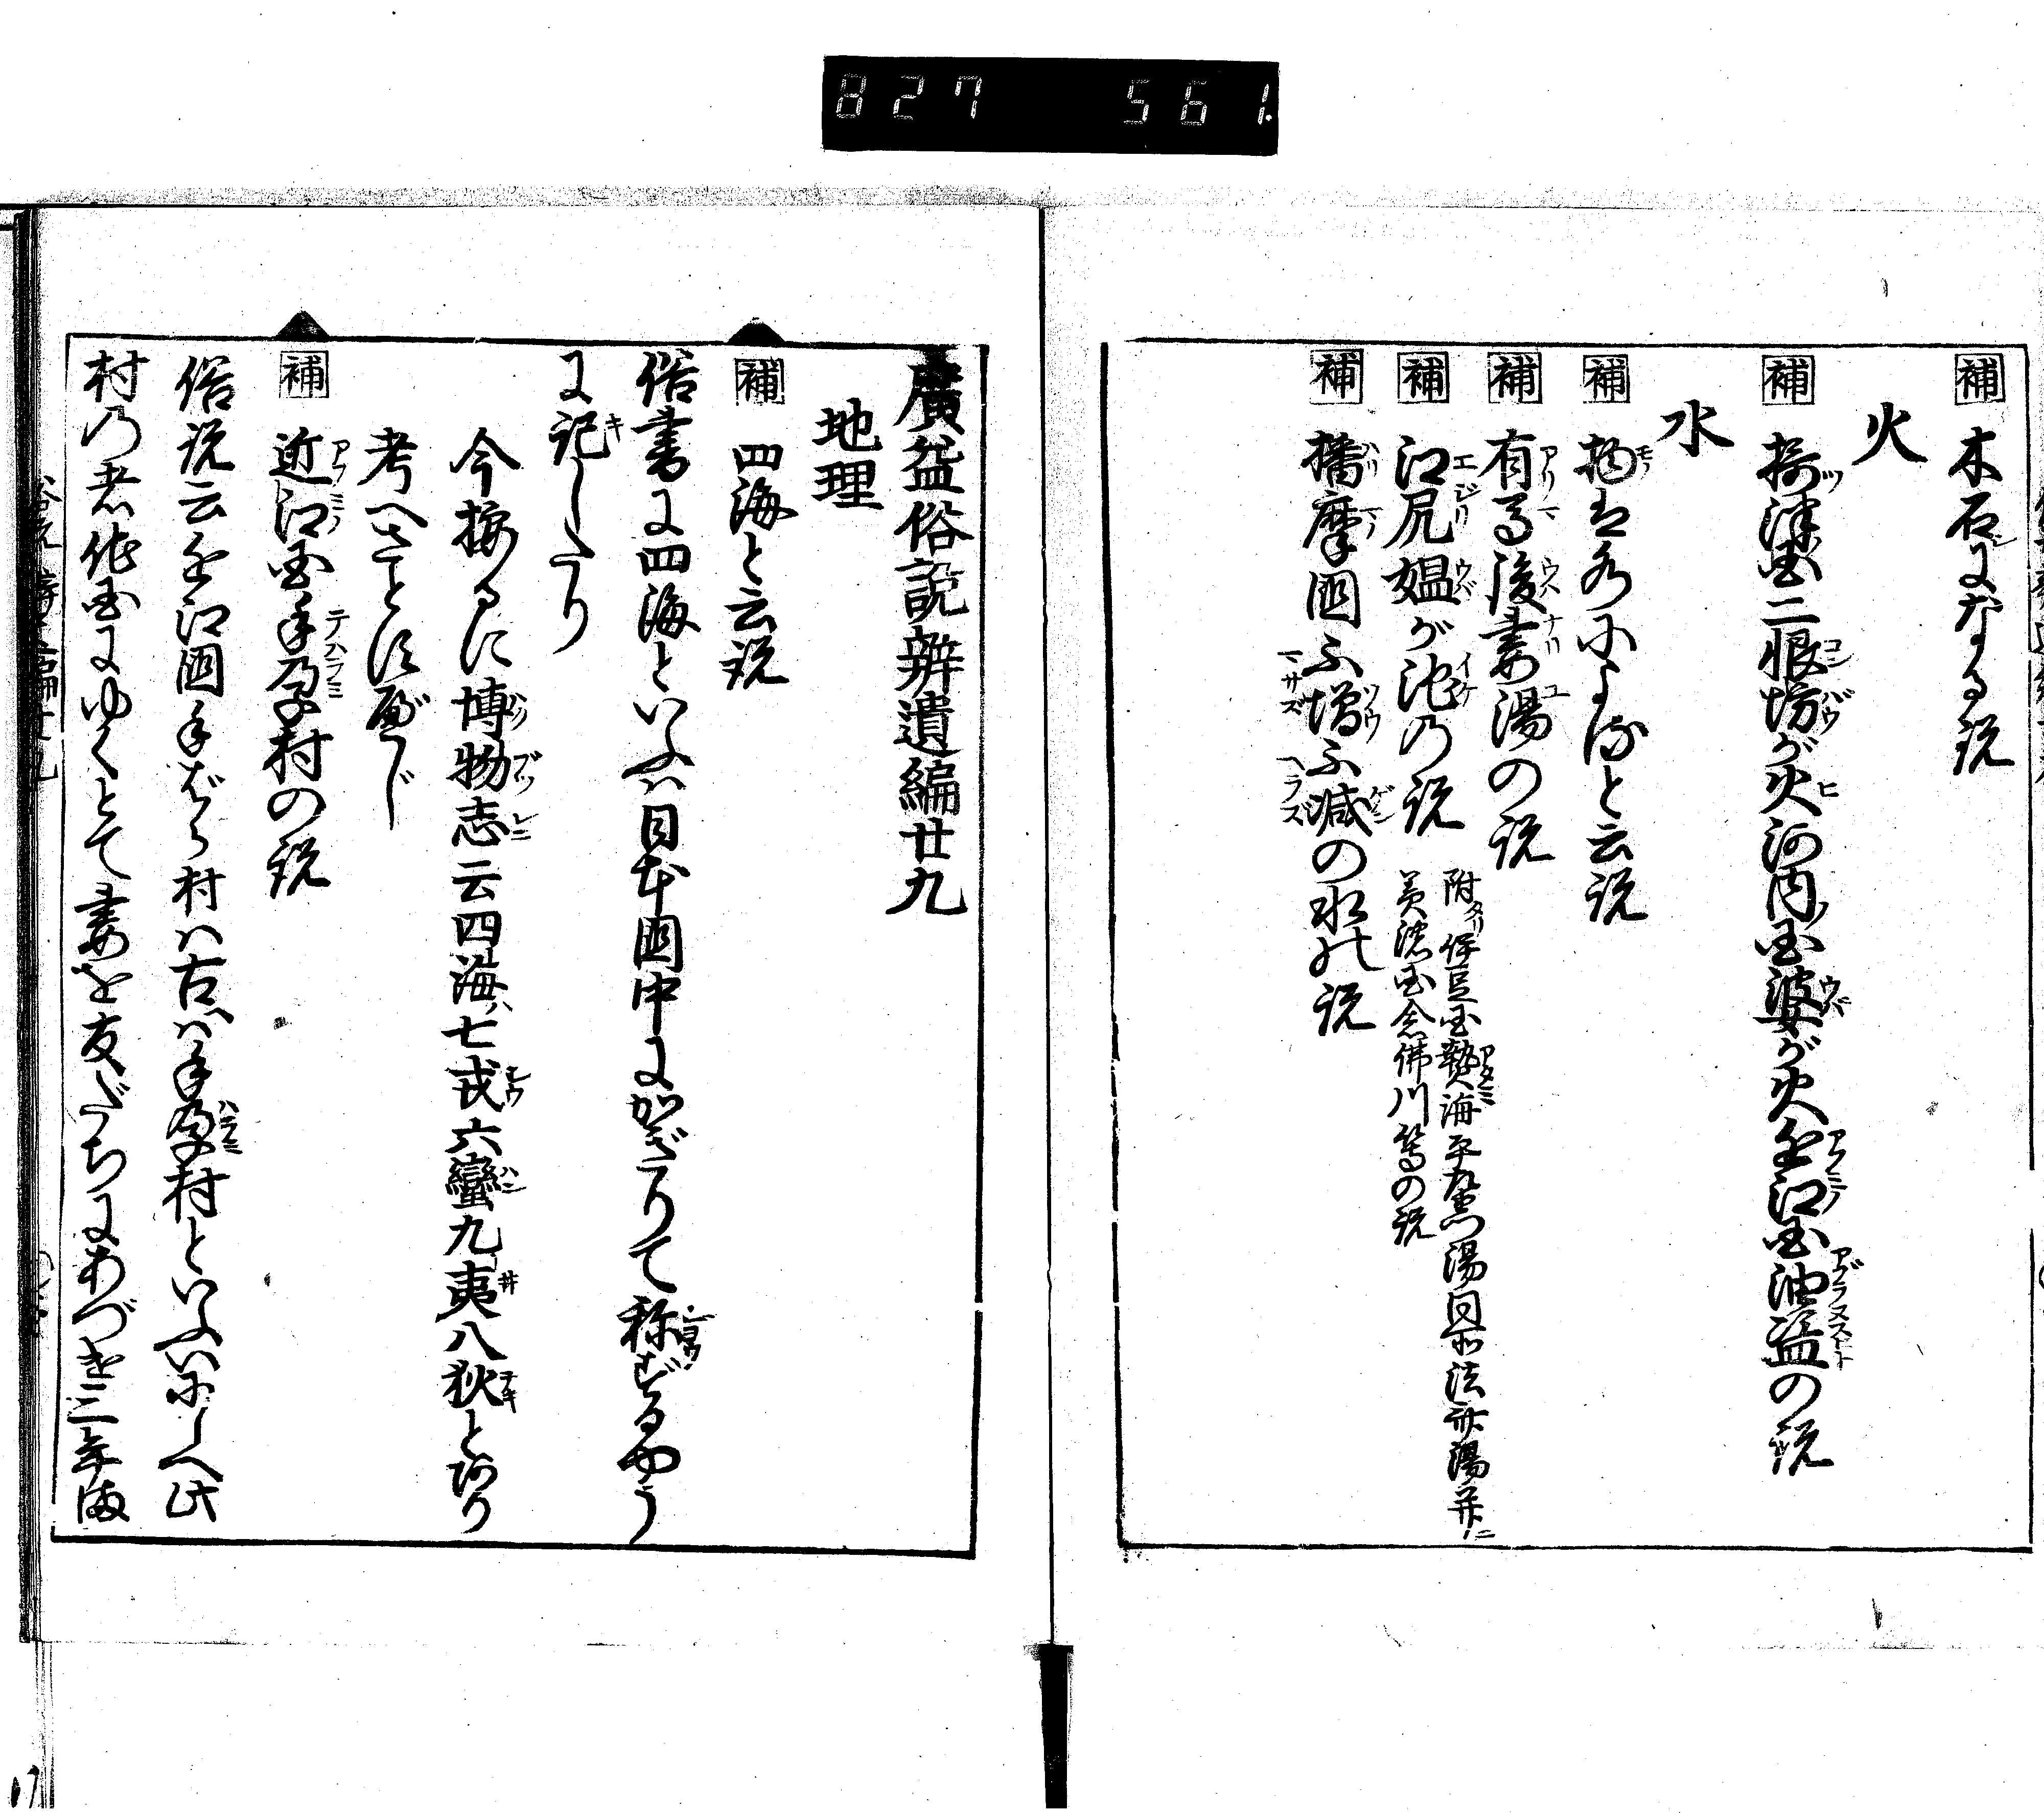 827 561.
補 木石になる説
火
補 摂津国二恨坊が火河内国婆が火近江国油盗の説
水
補 物は水によると云説
補 有馬後妻湯の説
附伊豆国熱海平左衛門湯同所法斎湯并ニ
補 江尻媼が池の説 美濃国念佛川等の説
補 播摩國不増不減の水の説
廣益俗説辨遺編廿九
地理
補 四海と云説
俗書に四海といふハ日本國中にかぎりて称ずるやう
に記したり
今按るに博物志云四海ハ七戎六蠻九夷八狄とあり
考へさとすべし
補 近江国手孕村の説
俗説云近江國手ばら村ハ古ハ手孕村といふいにしへ此
村の者他国にゆくとて妻を友だちにあづけ三年海